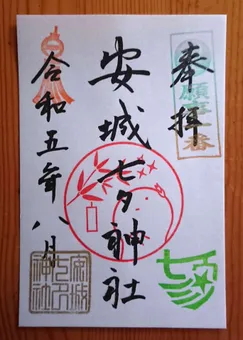 奉拝
安城七夕神社
令和五年八月
願事番
安城
七夕
神社